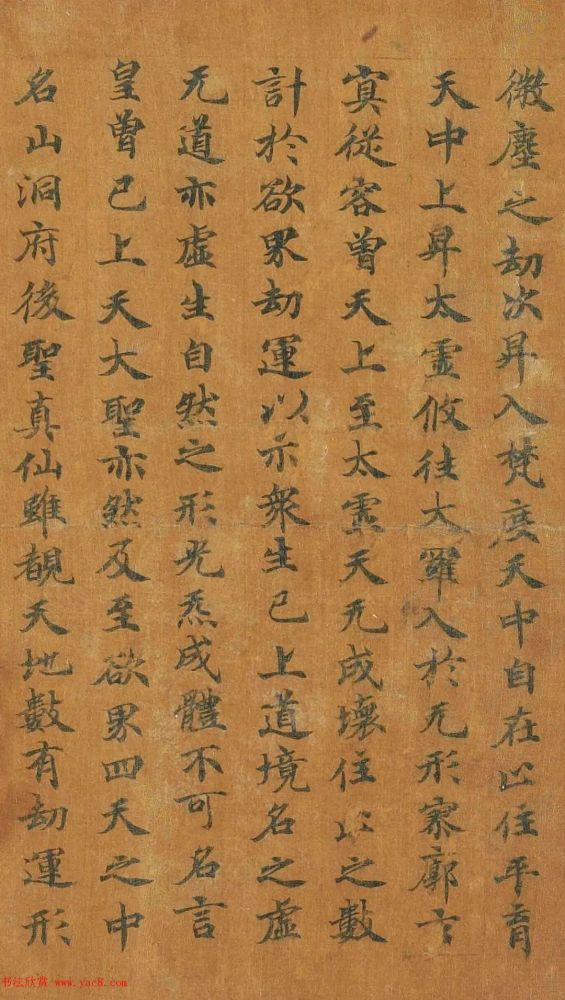 微塵之劫次昇入梵度天中自在以住平育
天中上昇太霊攸往大羅入於无形寥廓
冥從容曾天上至太霊天无成壞住以之數
計於欲界劫運以示衆生已上道境名之虛
无道亦虛生自然之形光炁成體不可名言
皇曾已上天大聖亦然及至欲界四天之中
名山洞府後聖真仙雖覩天地數有劫運形
书法欣赏 www.yac8.com